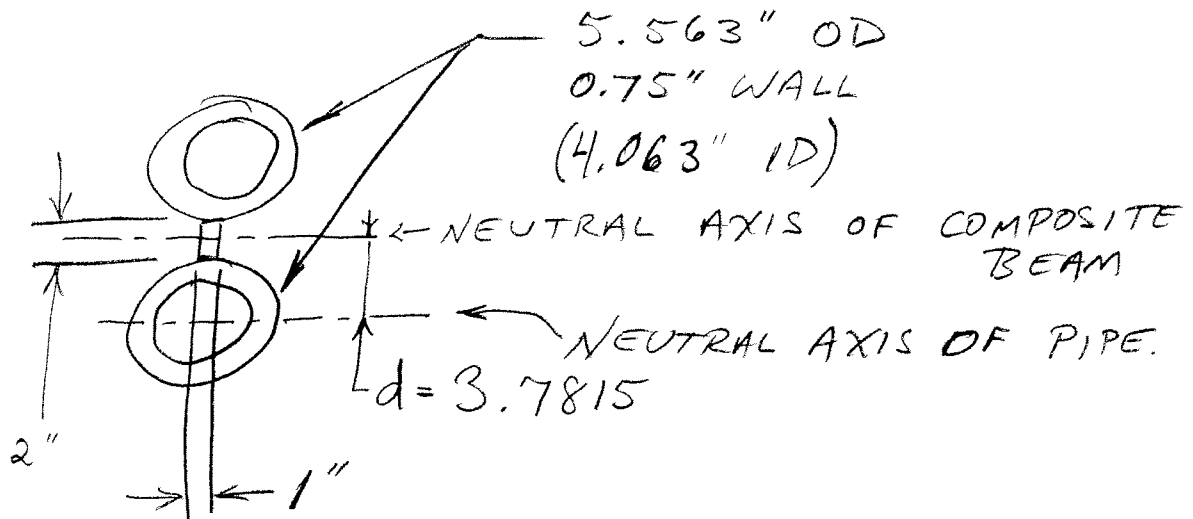 5.563" OD
0.75" WALL
(4.063" ID)
NEUTRAL AXIS OF COMPOSITE
BEAM
NEUTRAL AXIS OF PIPE.
d = 3.7815
2"
1"